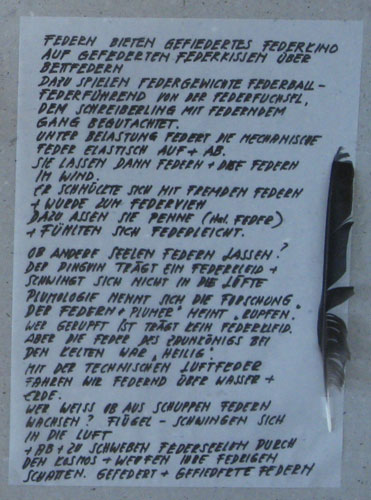 FEDERN BIETEN GEFIEDERTES FEDERKINO
AUF GEFEDERTEN FEDERKISSEN ÜBER
BETTFEDERN
DAZU SPIELEN FEDERGEWICHTE FEDERBALL-
FEDERFÜHREND VON DER FEDERFUCHSEL,
DEM SCHREIBERLING MIT FEDERNDEM
GANG BEGUTACHTET.
UNTER BELASTUNG FEDERT DIE MECHANISCHE
FEDER ELASTISCH AUF + AB.
SIE LASSEN DANN FEDERN + FEDERN
IM WIND.
ER SCHMÜCKTE SICH MIT FREMDEN FEDERN
+ WURDE ZUM FEDERVIEH
DAZU ASSEN SIE PENNE (ital. FEDER)
+ FÜHLTEN SICH FEDERLEICHT.
OB ANDERE SEELEN FEDERN LASSEN?
DER PINGUIN TRÄGT EIN FEDERKLEID +
SCHWINGT SICH NICHT IN DIE LÜFTE
PLUMOLOGIE NENNT SICH DIE FORSCHUNG
DER FEDERN + "PLUMER" MEINT "RUPFEN."
WER GERUPFT IST TRÄGT KEIN FEDERKLEID.
ABER DIE FEDER DES ZAUNKÖNIGS BEI
DEN KELTEN WAR "HEILIG".
MIT DER TECHNISCHEN LUFTFEDER
FAHREN WIR FEDERND ÜBER WASSER +
ERDE.
WER WEISS OB AUS SCHUPPEN FEDERN
WACHSEN? FLÜGEL - SCHWINGEN SICH
IN DIE LUFT
+ AB + ZU SCHWEBEN FEDERSEELEN DURCH
DEN KOSMOS + WERFEN IHRE FEDRIGEN
SCHATTEN. GEFEDERT + GEFIEDERTE FEDERN